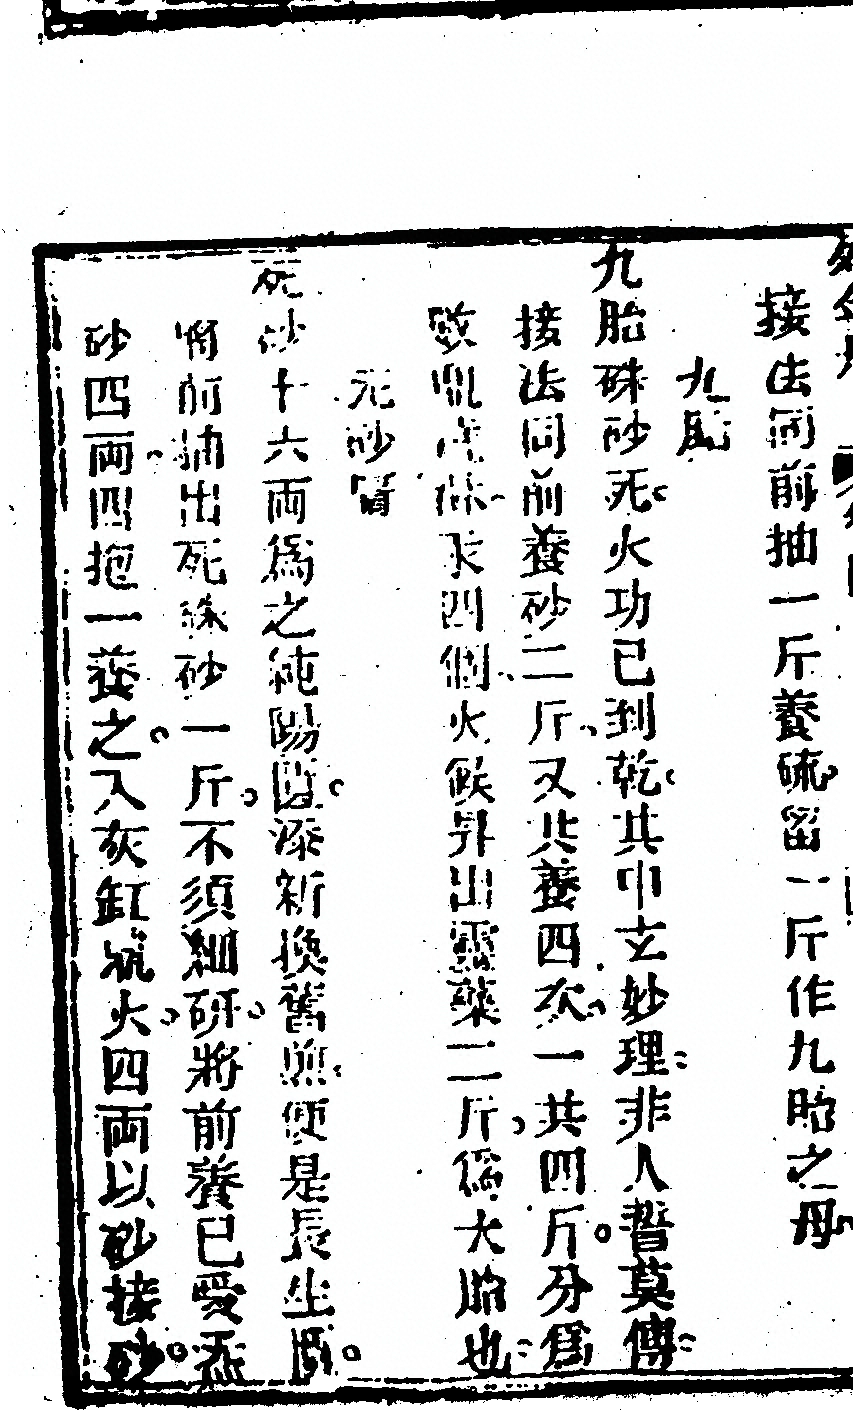 接法同前抽一斤養硫留一斤作九胎之母
九胎
九胎硃砂死火功已到乾其中玄妙理非人誓莫傳
接法同前養砂二斤又共養四次一共四斤分爲
四個火候昇出靈藥二斤爲大胎也
死砂
死砂十六兩爲之純陽添新換舊便是長生
前抽出死硃砂一斤不須細研將前養已受
砂四兩四抱一養之入灰缸火四兩以砂接砂